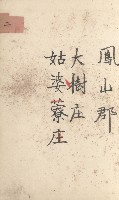 鳳山郡
大樹庄
姑婆藔庄
二